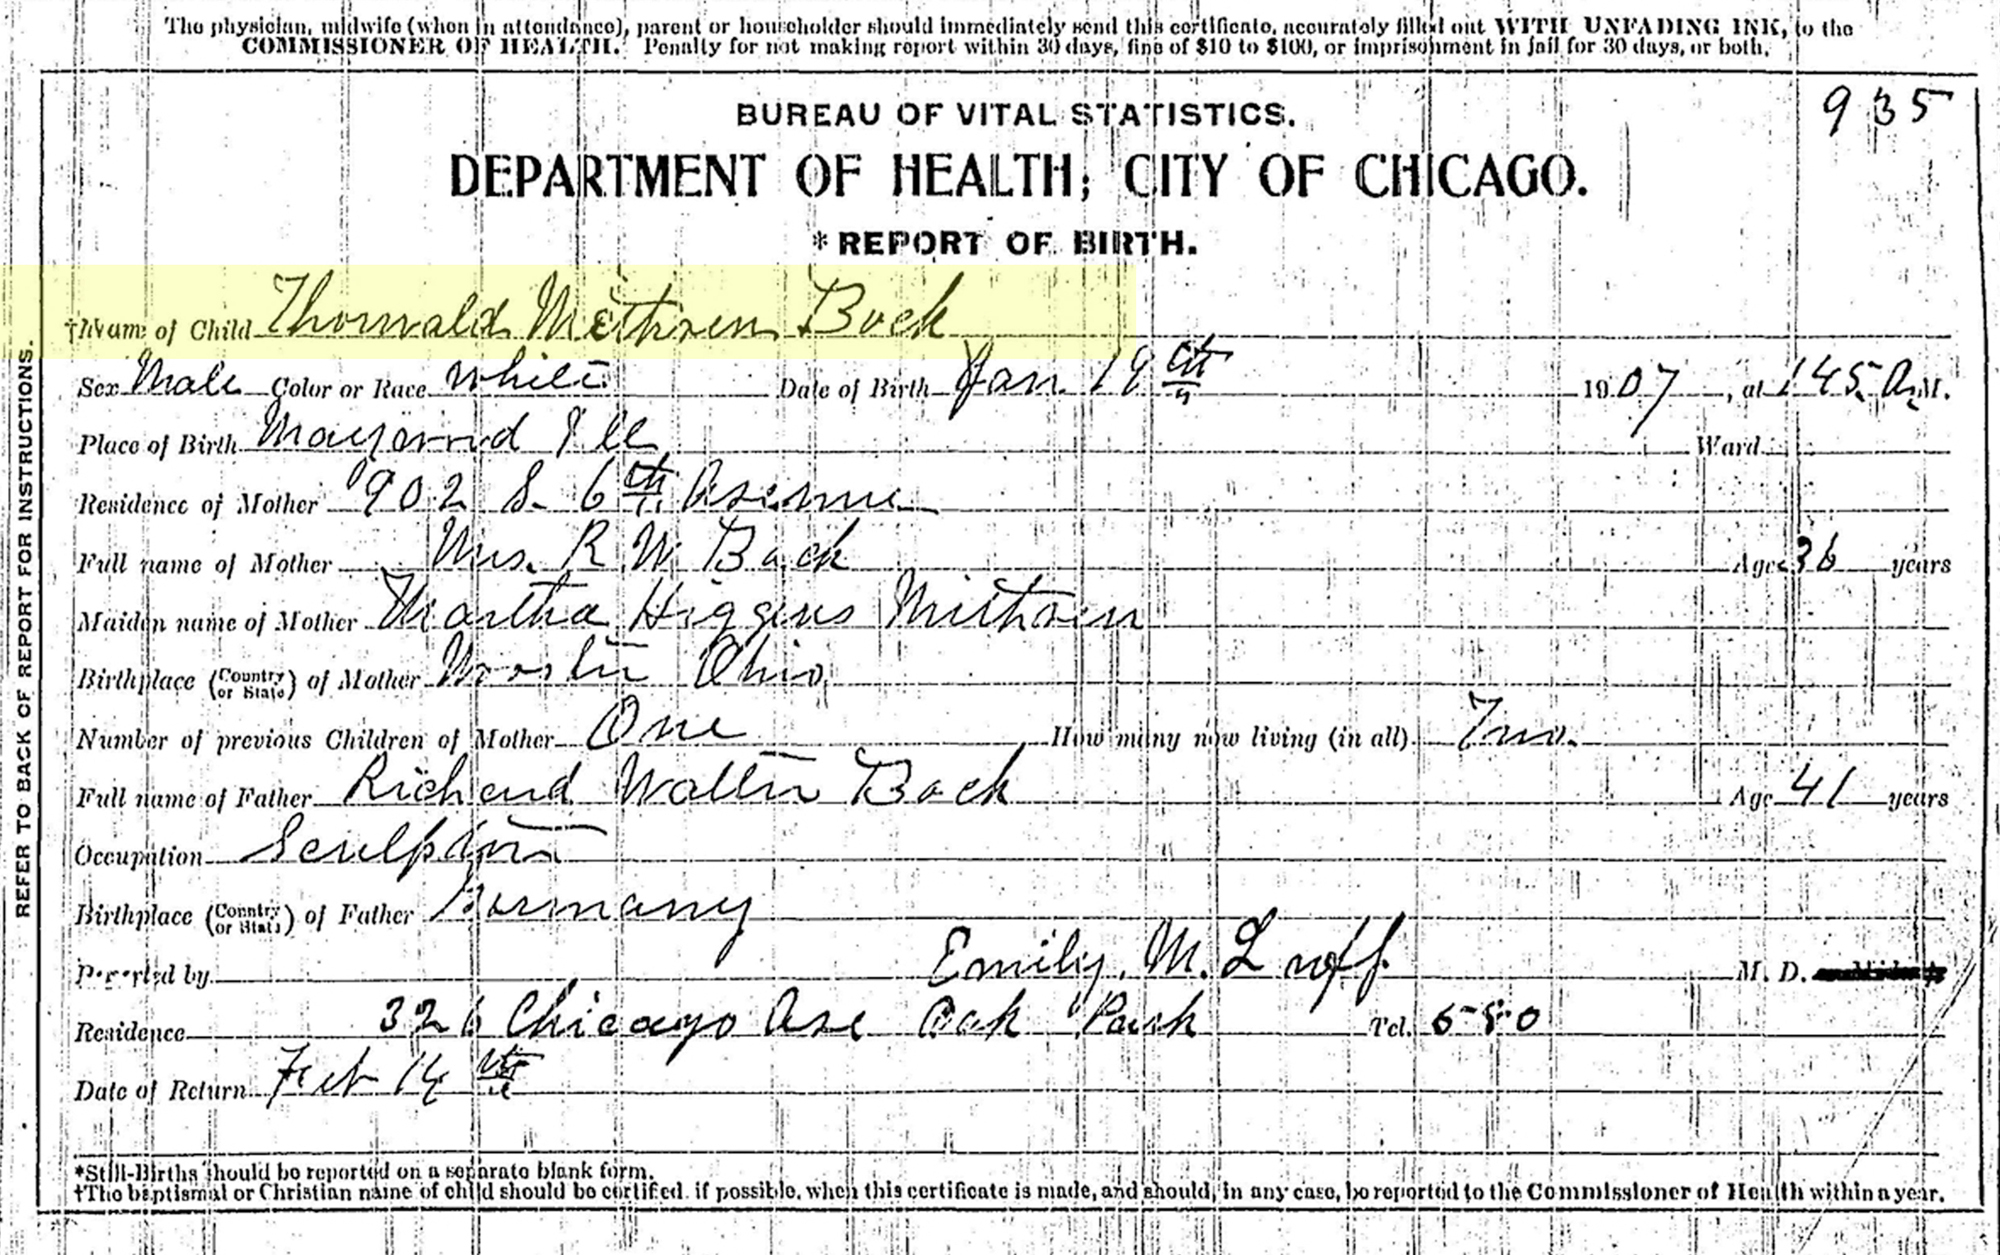 The physician, midwife (when in attendance), parent or householder should immediately send this certificate, accurately filled out WITH UNFADING INK, to the
COMMISSIONER OF HEALTH. Penalty for not making report within 30 days, fine of $10 to $100, or imprisonment in jail for 30 days, or both.
935
BUREAU OF VITAL STATISTICS.
DEPARTMENT OF HEALTH; CITY OF CHICAGO.
*REPORT OF BIRTH.
†Name of Child Thorwald Methven Bock
Sex Male Color or Race White Date of Birth Jan 19th 1907, at 145 A.M.
Place of Birth Maywood Ill Ward
Residence of Mother 902 S. 6th Avenue
Full name of Mother Mrs. R W Bock Age 36 years
Maiden name of Mother Martha Higgins Methven
Birthplace (Country or State) of Mother Wooster Ohio
Number of previous Children of Mother One How many now living (in all) Two.
Full name of Father Richard Walter Bock Age 41 years
Occupation Sculptor
Birthplace (Country or State) of Father Germany
Reported by Emily. M. Luff. M. D.
Residence 326 Chicago Ave Oak Park Tel. 580
Date of Return Feb 14th
*Still-Births should be reported on a separate blank form.
†The baptismal or Christian name of child should be certified, if possible, when this certificate is made, and should, in any case, be reported to the Commissioner of Health within a year.
REFER TO BACK OF REPORT FOR INSTRUCTIONS.